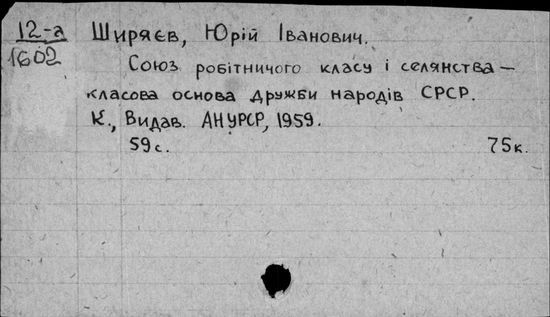 12-а
1602
Ширяєв, Юрій Іванович.
Союз робітничого класу і селянства –
класова основа дружби народів СРСР.
К., Видав. АН УРСР, 1959.
59 с. 75 к.